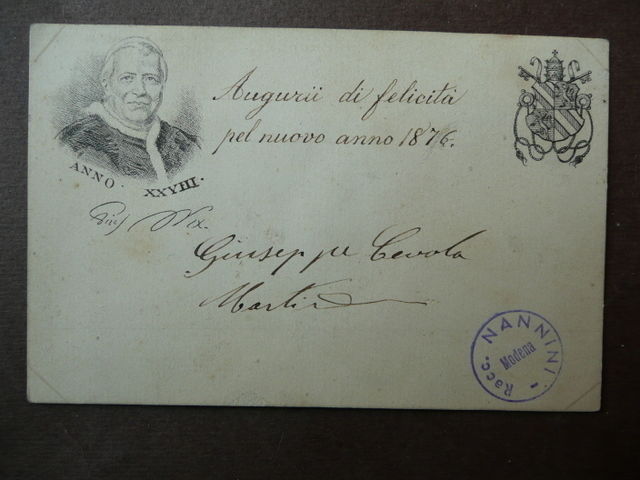 Augurii di felicità
pel nuovo anno 1876.
ANNO. XXVIII.
Pius IX.
Giuseppe Cevola
Racc. NANNINI -
Modena